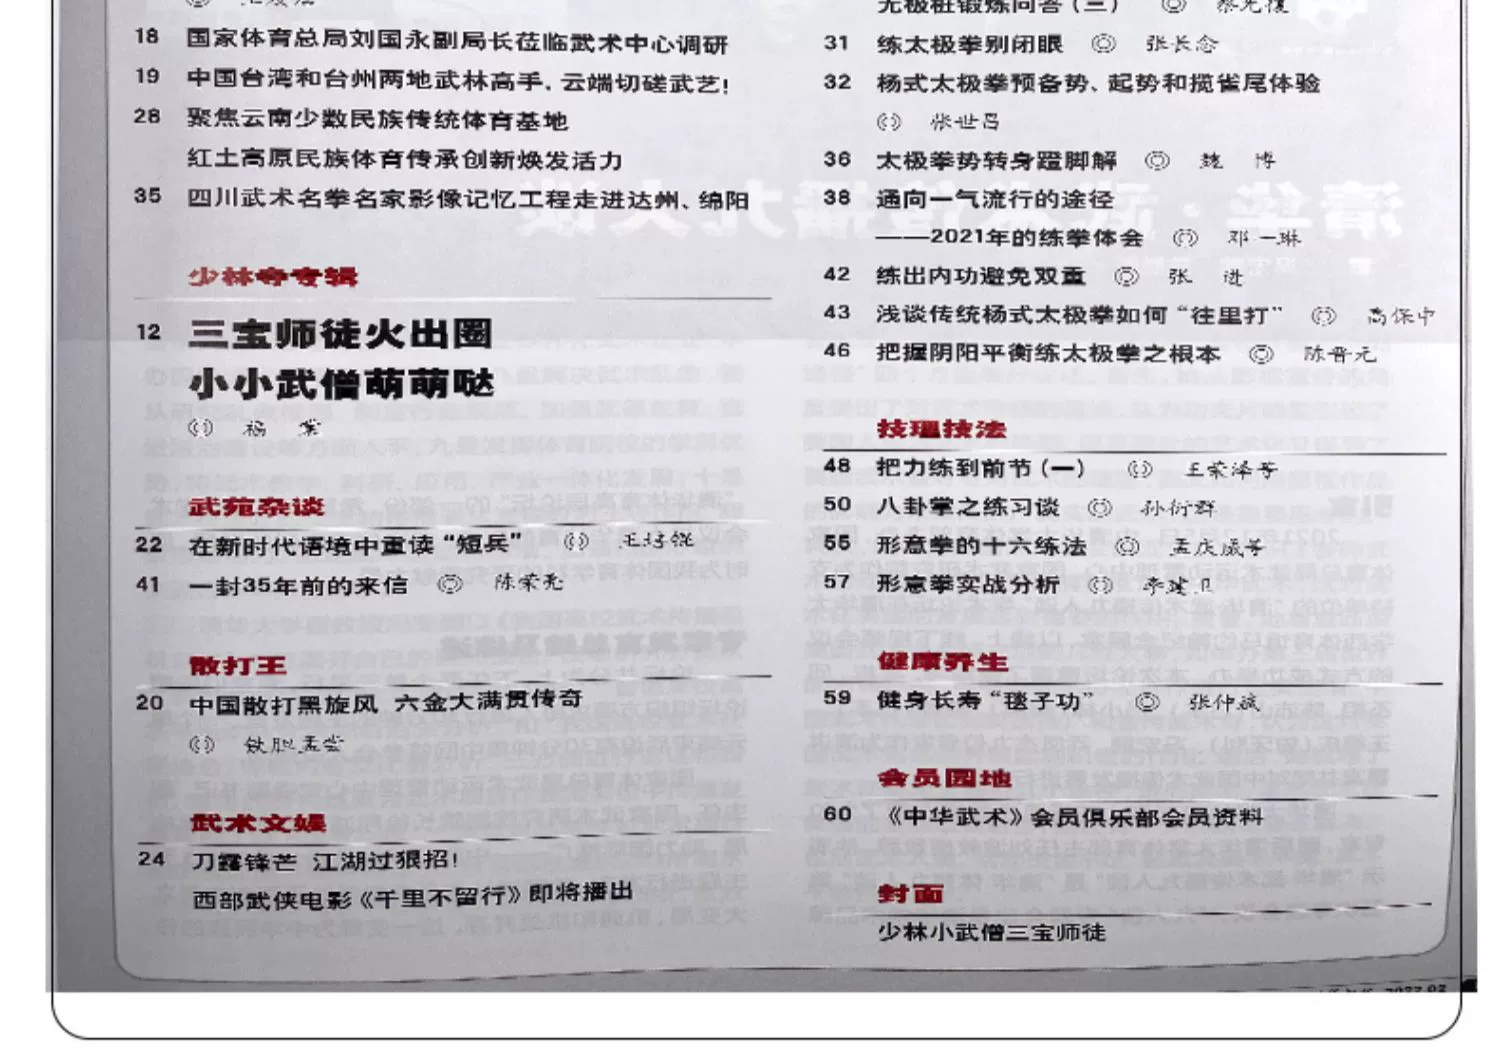 18 国家体育总局刘国永副局长莅临武术中心调研
19 中国台湾和台州两地武林高手，云端切磋武艺！
28 聚焦云南少数民族传统体育基地
红土高原民族体育传承创新焕发活力
35 四川武术名拳名家影像记忆工程走进达州、绵阳
少林寺专辑
12 三宝师徒火出圈
小小武僧萌萌哒
武苑杂谈
22 在新时代语境中重读“短兵”
41 一封35年前的来信 陈荣亮
散打王
20 中国散打黑旋风 六金大满贯传奇
铁胆孟尝
武术文娱
24 刀露锋芒 江湖过狠招！
西部武侠电影《千里不留行》即将播出
无极桩锻炼问答（三）
31 练太极拳别闭眼 张长念
32 杨式太极拳预备势、起势和揽雀尾体验
张世昌
36 太极拳势转身蹬脚解 魏 博
38 通向一气流行的途径
——2021年的练拳体会 邓一琳
42 练出内功避免双重 张 进
43 浅谈传统杨式太极拳如何“往里打” 高保中
46 把握阴阳平衡练太极拳之根本 陈晋元
技理技法
48 把力练到前节（一） 王荣泽等
50 八卦掌之练习谈 孙衍群
55 形意拳的十六练法 孟庆威等
57 形意拳实战分析 李建卫
健康养生
59 健身长寿“毯子功” 张仲斌
会员园地
60 《中华武术》会员俱乐部会员资料
封面
少林小武僧三宝师徒